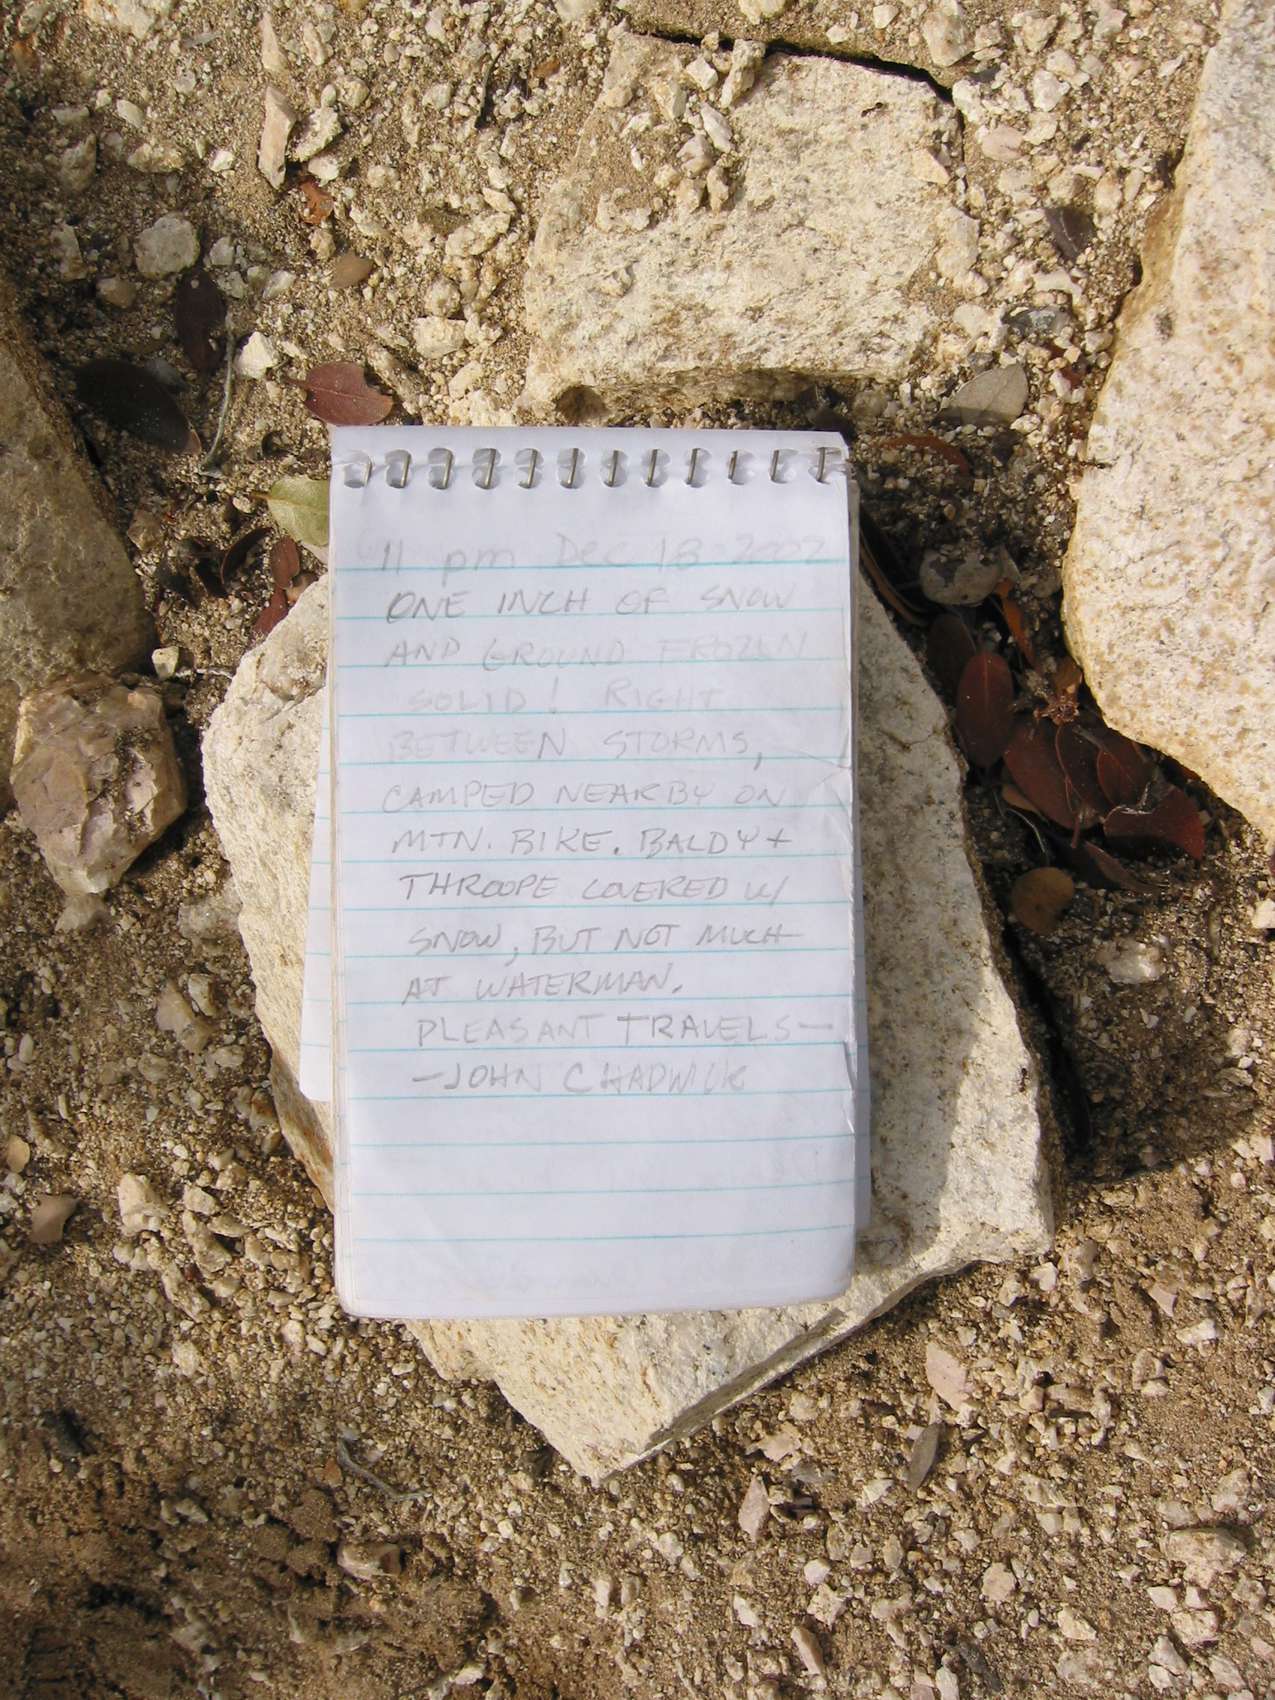 11 pm Dec 18-2002
ONE INCH OF SNOW
AND GROUND FROZEN
SOLID! RIGHT
BETWEEN STORMS,
CAMPED NEARBY ON
MTN. BIKE. BALDY +
THROOPE COVERED W/
SNOW, BUT NOT MUCH
AT WATERMAN.
PLEASANT TRAVELS—
—JOHN CHADWICK